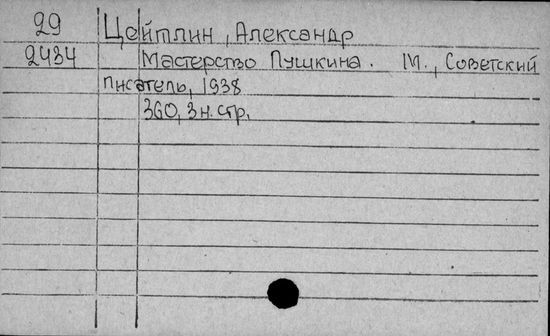 29 Цейтлин, Александр
2434 Мастерство Пушкина. М., Советский
писатель, 1938
360, 3 н. стр.